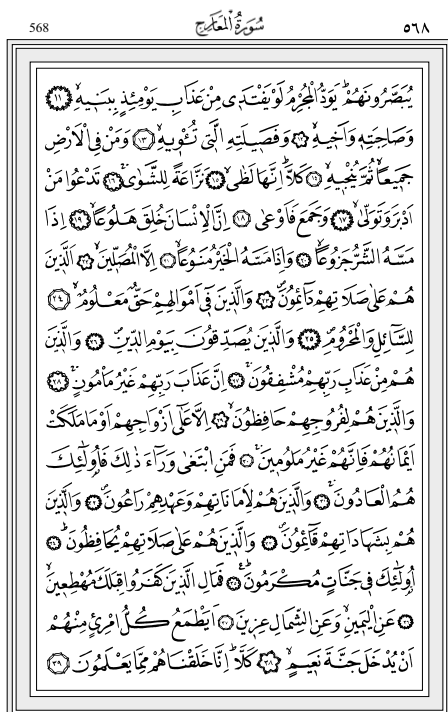 568 سُورَةُ الْمَعَارِجِ ٥٦٨
يُبَصَّرُونَهُمْ يَوَدُّ الْمُجْرِمُ لَوْ يَفْتَدٖى مِنْ عَذَابِ يَوْمِئِذٍ بِبَنٖيهِ ﴿١١﴾
وَصَاحِبَتِهٖ وَاَخٖيهِ ﴿١٢﴾ وَفَصٖيلَتِهِ الَّتٖى تُــْٔوٖيهِ ﴿١٣﴾ وَمَنْ فِى الْاَرْضِ
جَمٖيعًا ثُمَّ يُنْجٖيهِ ﴿١٤﴾ كَلَّا اِنَّهَا لَظٰى ﴿١٥﴾ نَزَّاعَةً لِلشَّوٰى ﴿١٦﴾ تَدْعُوا مَنْ
اَدْبَرَ وَتَوَلّٰى ﴿١٧﴾ وَجَمَعَ فَاَوْعٰى ﴿١٨﴾ اِنَّ الْاِنْسَانَ خُلِقَ هَلُوعًا ﴿١٩﴾ اِذَا
مَسَّهُ الشَّرُّ جَزُوعًا ﴿٢٠﴾ وَاِذَا مَسَّهُ الْخَيْرُ مَنُوعًا ﴿٢١﴾ اِلَّا الْمُصَلّٖينَ ﴿٢٢﴾ اَلَّذٖينَ
هُمْ عَلٰى صَلَاتِهِمْ دَائِمُونَ ﴿٢٣﴾ وَالَّذٖينَ فٖى اَمْوَالِهِمْ حَقٌّ مَعْلُومٌ ﴿٢٤﴾
لِلسَّائِلِ وَالْمَحْرُومِ ﴿٢٥﴾ وَالَّذٖينَ يُصَدِّقُونَ بِيَوْمِ الدّٖينِ ﴿٢٦﴾ وَالَّذٖينَ
هُمْ مِنْ عَذَابِ رَبِّهِمْ مُشْفِقُونَ ﴿٢٧﴾ اِنَّ عَذَابَ رَبِّهِمْ غَيْرُ مَأْمُونٍ ﴿٢٨﴾
وَالَّذٖينَ هُمْ لِفُرُوجِهِمْ حَافِظُونَ ﴿٢٩﴾ اِلَّا عَلٰى اَزْوَاجِهِمْ اَوْ مَا مَلَكَتْ
اَيْمَانُهُمْ فَاِنَّهُمْ غَيْرُ مَلُومٖينَ ﴿٣٠﴾ فَمَنِ ابْتَغٰى وَرَاءَ ذٰلِكَ فَاُولٰئِكَ
هُمُ الْعَادُونَ ﴿٣١﴾ وَالَّذٖينَ هُمْ لِاَمَانَاتِهِمْ وَعَهْدِهِمْ رَاعُونَ ﴿٣٢﴾ وَالَّذٖينَ
هُمْ بِشَهَادَاتِهِمْ قَائِمُونَ ﴿٣٣﴾ وَالَّذٖينَ هُمْ عَلٰى صَلَاتِهِمْ يُحَافِظُونَ ﴿٣٤﴾
اُولٰئِكَ فٖى جَنَّاتٍ مُكْرَمُونَ ﴿٣٥﴾ فَمَالِ الَّذٖينَ كَفَرُوا قِبَلَكَ مُهْطِعٖينَ
﴿٣٦﴾ عَنِ الْيَمٖينِ وَعَنِ الشِّمَالِ عِزٖينَ ﴿٣٧﴾ اَيَطْمَعُ كُلُّ امْرِئٍ مِنْهُمْ
اَنْ يُدْخَلَ جَنَّةَ نَعٖيمٍ ﴿٣٨﴾ كَلَّا اِنَّا خَلَقْنَاهُمْ مِمَّا يَعْلَمُونَ ﴿٣٩﴾